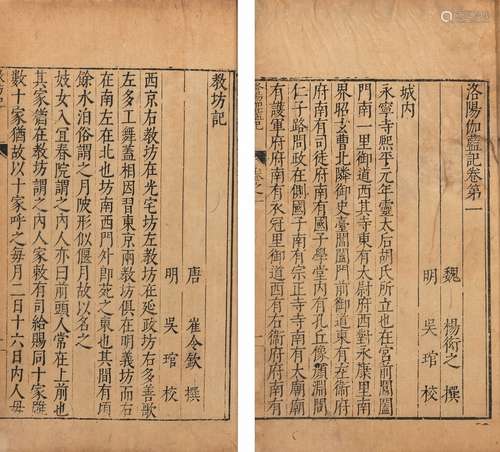 洛陽伽藍記卷第一
魏 楊衒之 撰
明 吳琯 校
城内
永寧寺熙平元年靈太后胡氏所立也在宮前閶闔
門南一里御道西其寺東有太尉府西對永康里南
界昭玄曹北隣御史臺閶闔門前御道東有左衛府
府南有司徒府南有國子學堂内有孔丘像顏淵問
仁子路問政在側國子南有宗正寺寺南有太廟廟
有護軍府府南有衣冠里御道西有右衛府府南
洛陽伽藍記 卷之一
教坊記
唐 崔令欽 撰
明 吳琯 校
西京右教坊在光宅坊左教坊在延政坊右多善歌
左多工舞蓋相因習東京兩教坊俱在明義坊而右
在南左在北也坊南西門外即苑之東也其間有頃
餘水泊俗謂之月陂形似偃月故以名之
妓女入宜春院謂之内人亦曰前頭人常在上前也
其家猶在教坊謂之内人家敕有司給賜同十家雖
數十家猶故以十家呼之每月二日十六日内人毋